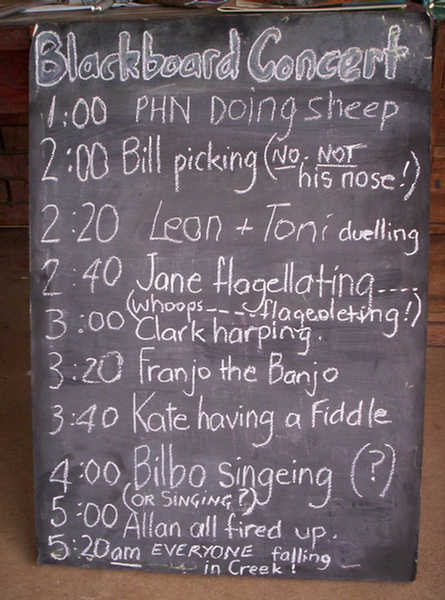 Blackboard Concert
1:00 PHN Doing sheep
2:00 Bill picking (NO. NOT
his nose!)
2:20 Leon + Toni duelling
2:40 Jane flagellating....
(whoops----flageoleting!)
3:00 Clark harping.
3:20 Franjo the Banjo
3:40 Kate having a Fiddle
4:00 Bilbo singeing (?)
(OR SINGING?)
5:00 Allan all fired up.
5:20am EVERYONE falling
in Creek!